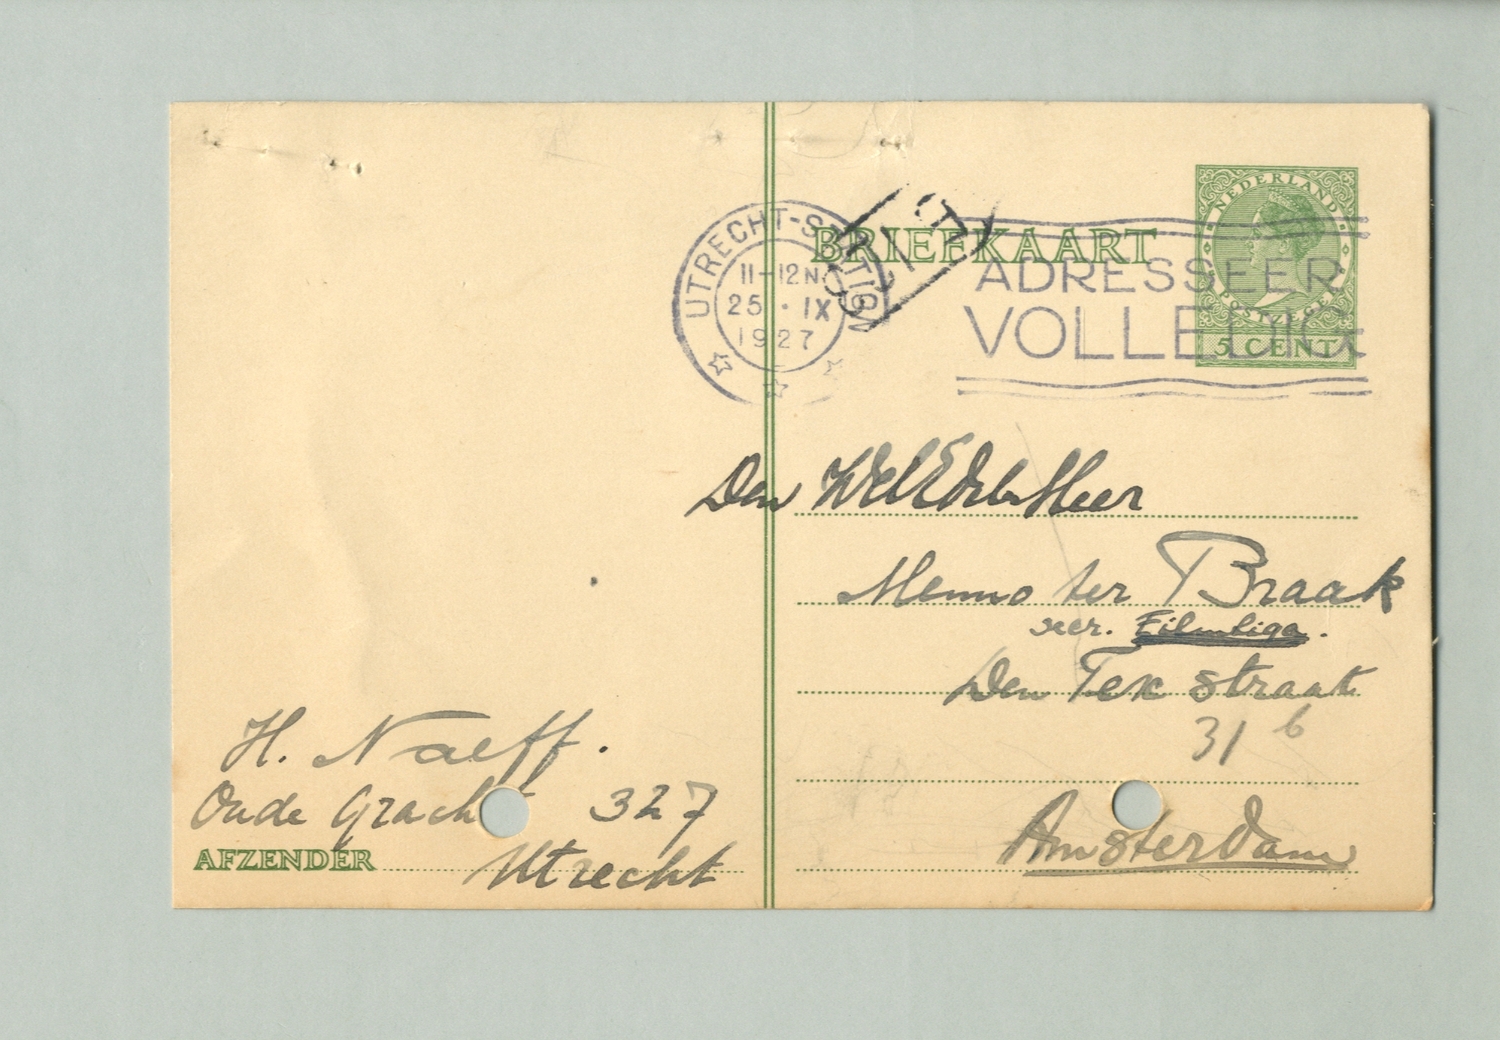 BRIEFKAART
NEDERLAND
POSTZEGEL
5 CENT
UTRECHT-STATION
11-12 N
25 · IX
1927
ADRESSEER
VOLLEDIG
Den WelEdelen Heer
Menno ter Braak
secr. Filmliga.
Den Tex straat
31 b
Amsterdam
H. Naeff.
Oude Gracht 327
AFZENDER Utrecht